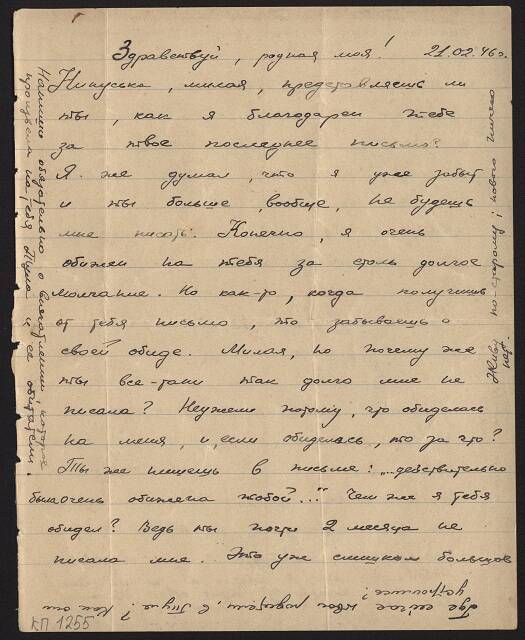 Здравствуй, родная моя! 21.02.46г.
Нинуська, милая, представляешь ли
ты, как я благодарен тебе
за твое последнее письмо?
Я же думал, что я уже забыт
и ты больше, вообще, не будешь
мне писать. Конечно, я очень
обижен на тебя за столь долгое
молчание. Но как-то, когда получишь
от тебя письмо, то забываешь о
своей обиде. Милая, но почему же
ты все-таки так долго мне не
писала? Неужели потому, что обиделась
на меня, и, если обиделась, то за что?
Ты же пишешь в письме: "...действительно
была очень обижена тобой?..." Чем же я тебя
обидел? Ведь ты почти 2 месяца не
писала мне. Это уже слишком большов
Где сейчас твои родители, в Туле? Как они
устроились?
Напиши обязательно о впечатлении, которое
произвела на тебя Тула и ее обитатели.
Живу по-старому; нового ничего
нет.
КП 1255